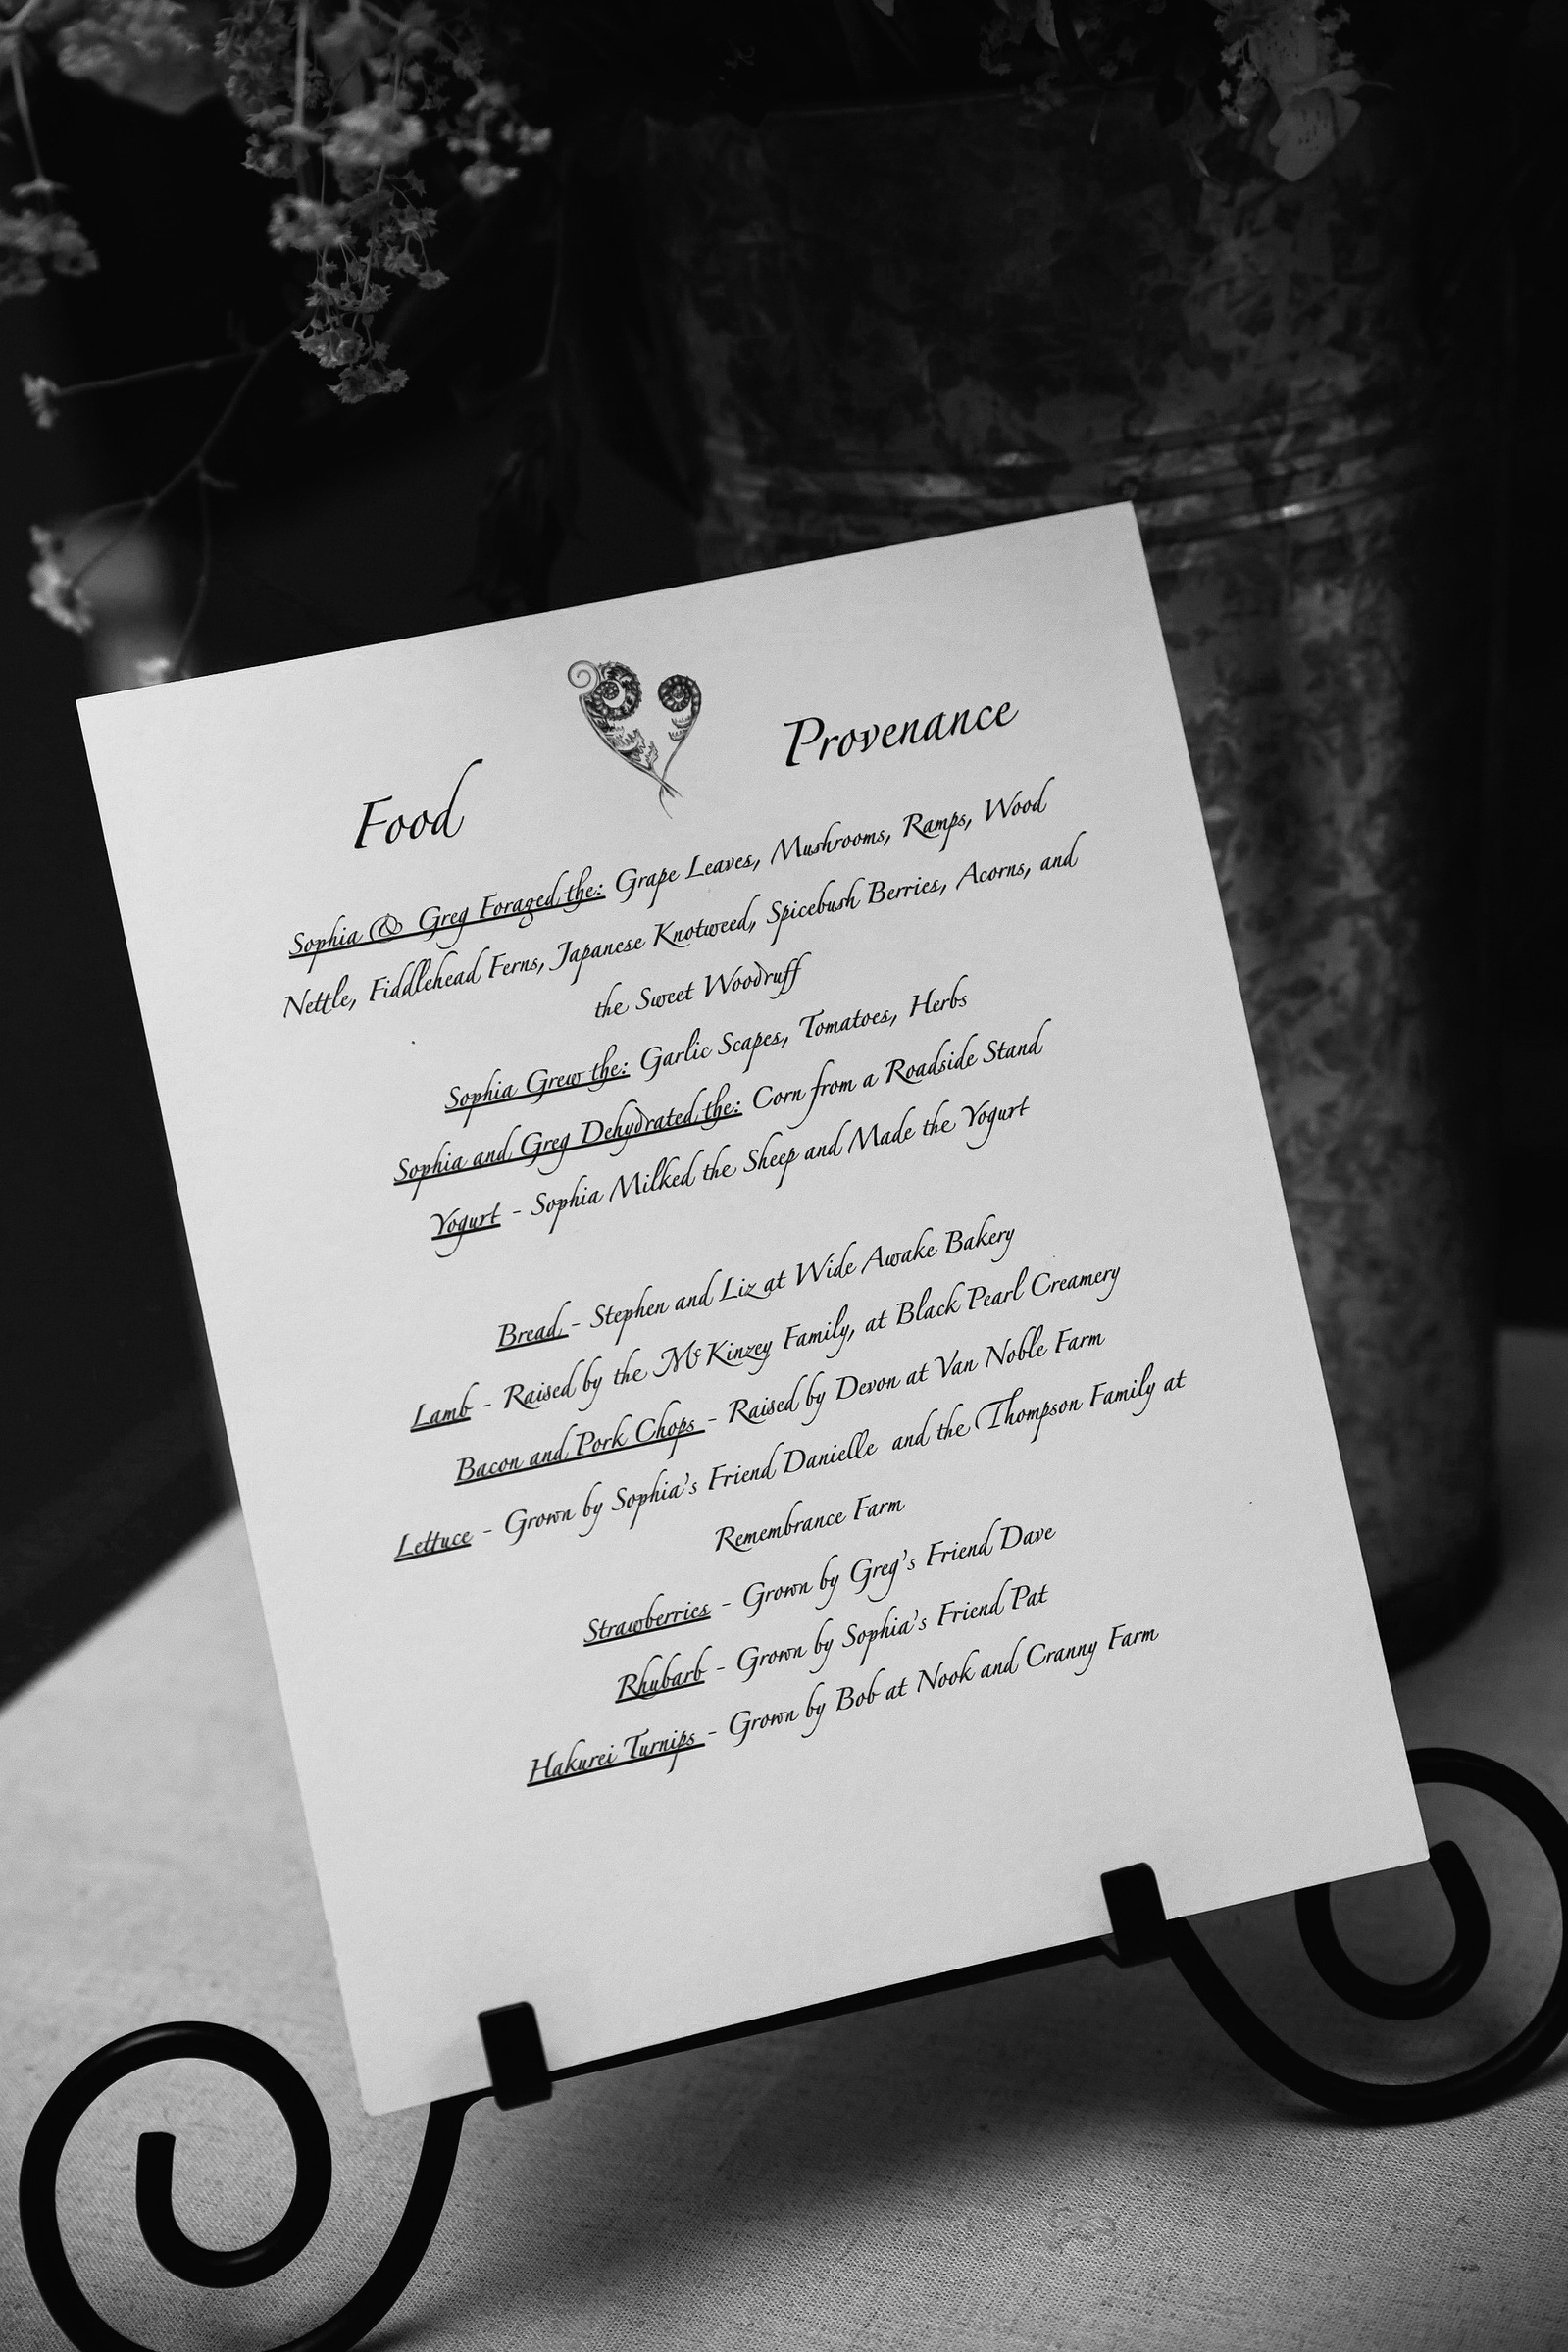 Food Provenance
Sophia & Greg Foraged the: Grape Leaves, Mushrooms, Ramps, Wood
Nettle, Fiddlehead Ferns, Japanese Knotweed, Spicebush Berries, Acorns, and
the Sweet Woodruff
Sophia Grew the: Garlic Scapes, Tomatoes, Herbs
Sophia and Greg Dehydrated the: Corn from a Roadside Stand
Yogurt - Sophia Milked the Sheep and Made the Yogurt
Bread - Stephen and Liz at Wide Awake Bakery
Lamb - Raised by the McKinzey Family, at Black Pearl Creamery
Bacon and Pork Chops - Raised by Devon at Van Noble Farm
Lettuce - Grown by Sophia's Friend Danielle and the Thompson Family at
Remembrance Farm
Strawberries - Grown by Greg's Friend Dave
Rhubarb - Grown by Sophia's Friend Pat
Hakurei Turnips - Grown by Bob at Nook and Cranny Farm